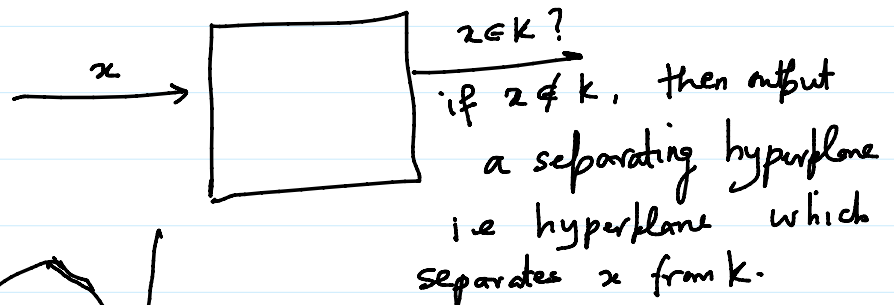 x
x ∈ K ?
if x ∉ K, then output
a separating hyperplane
i.e hyperplane which
separates x from K.